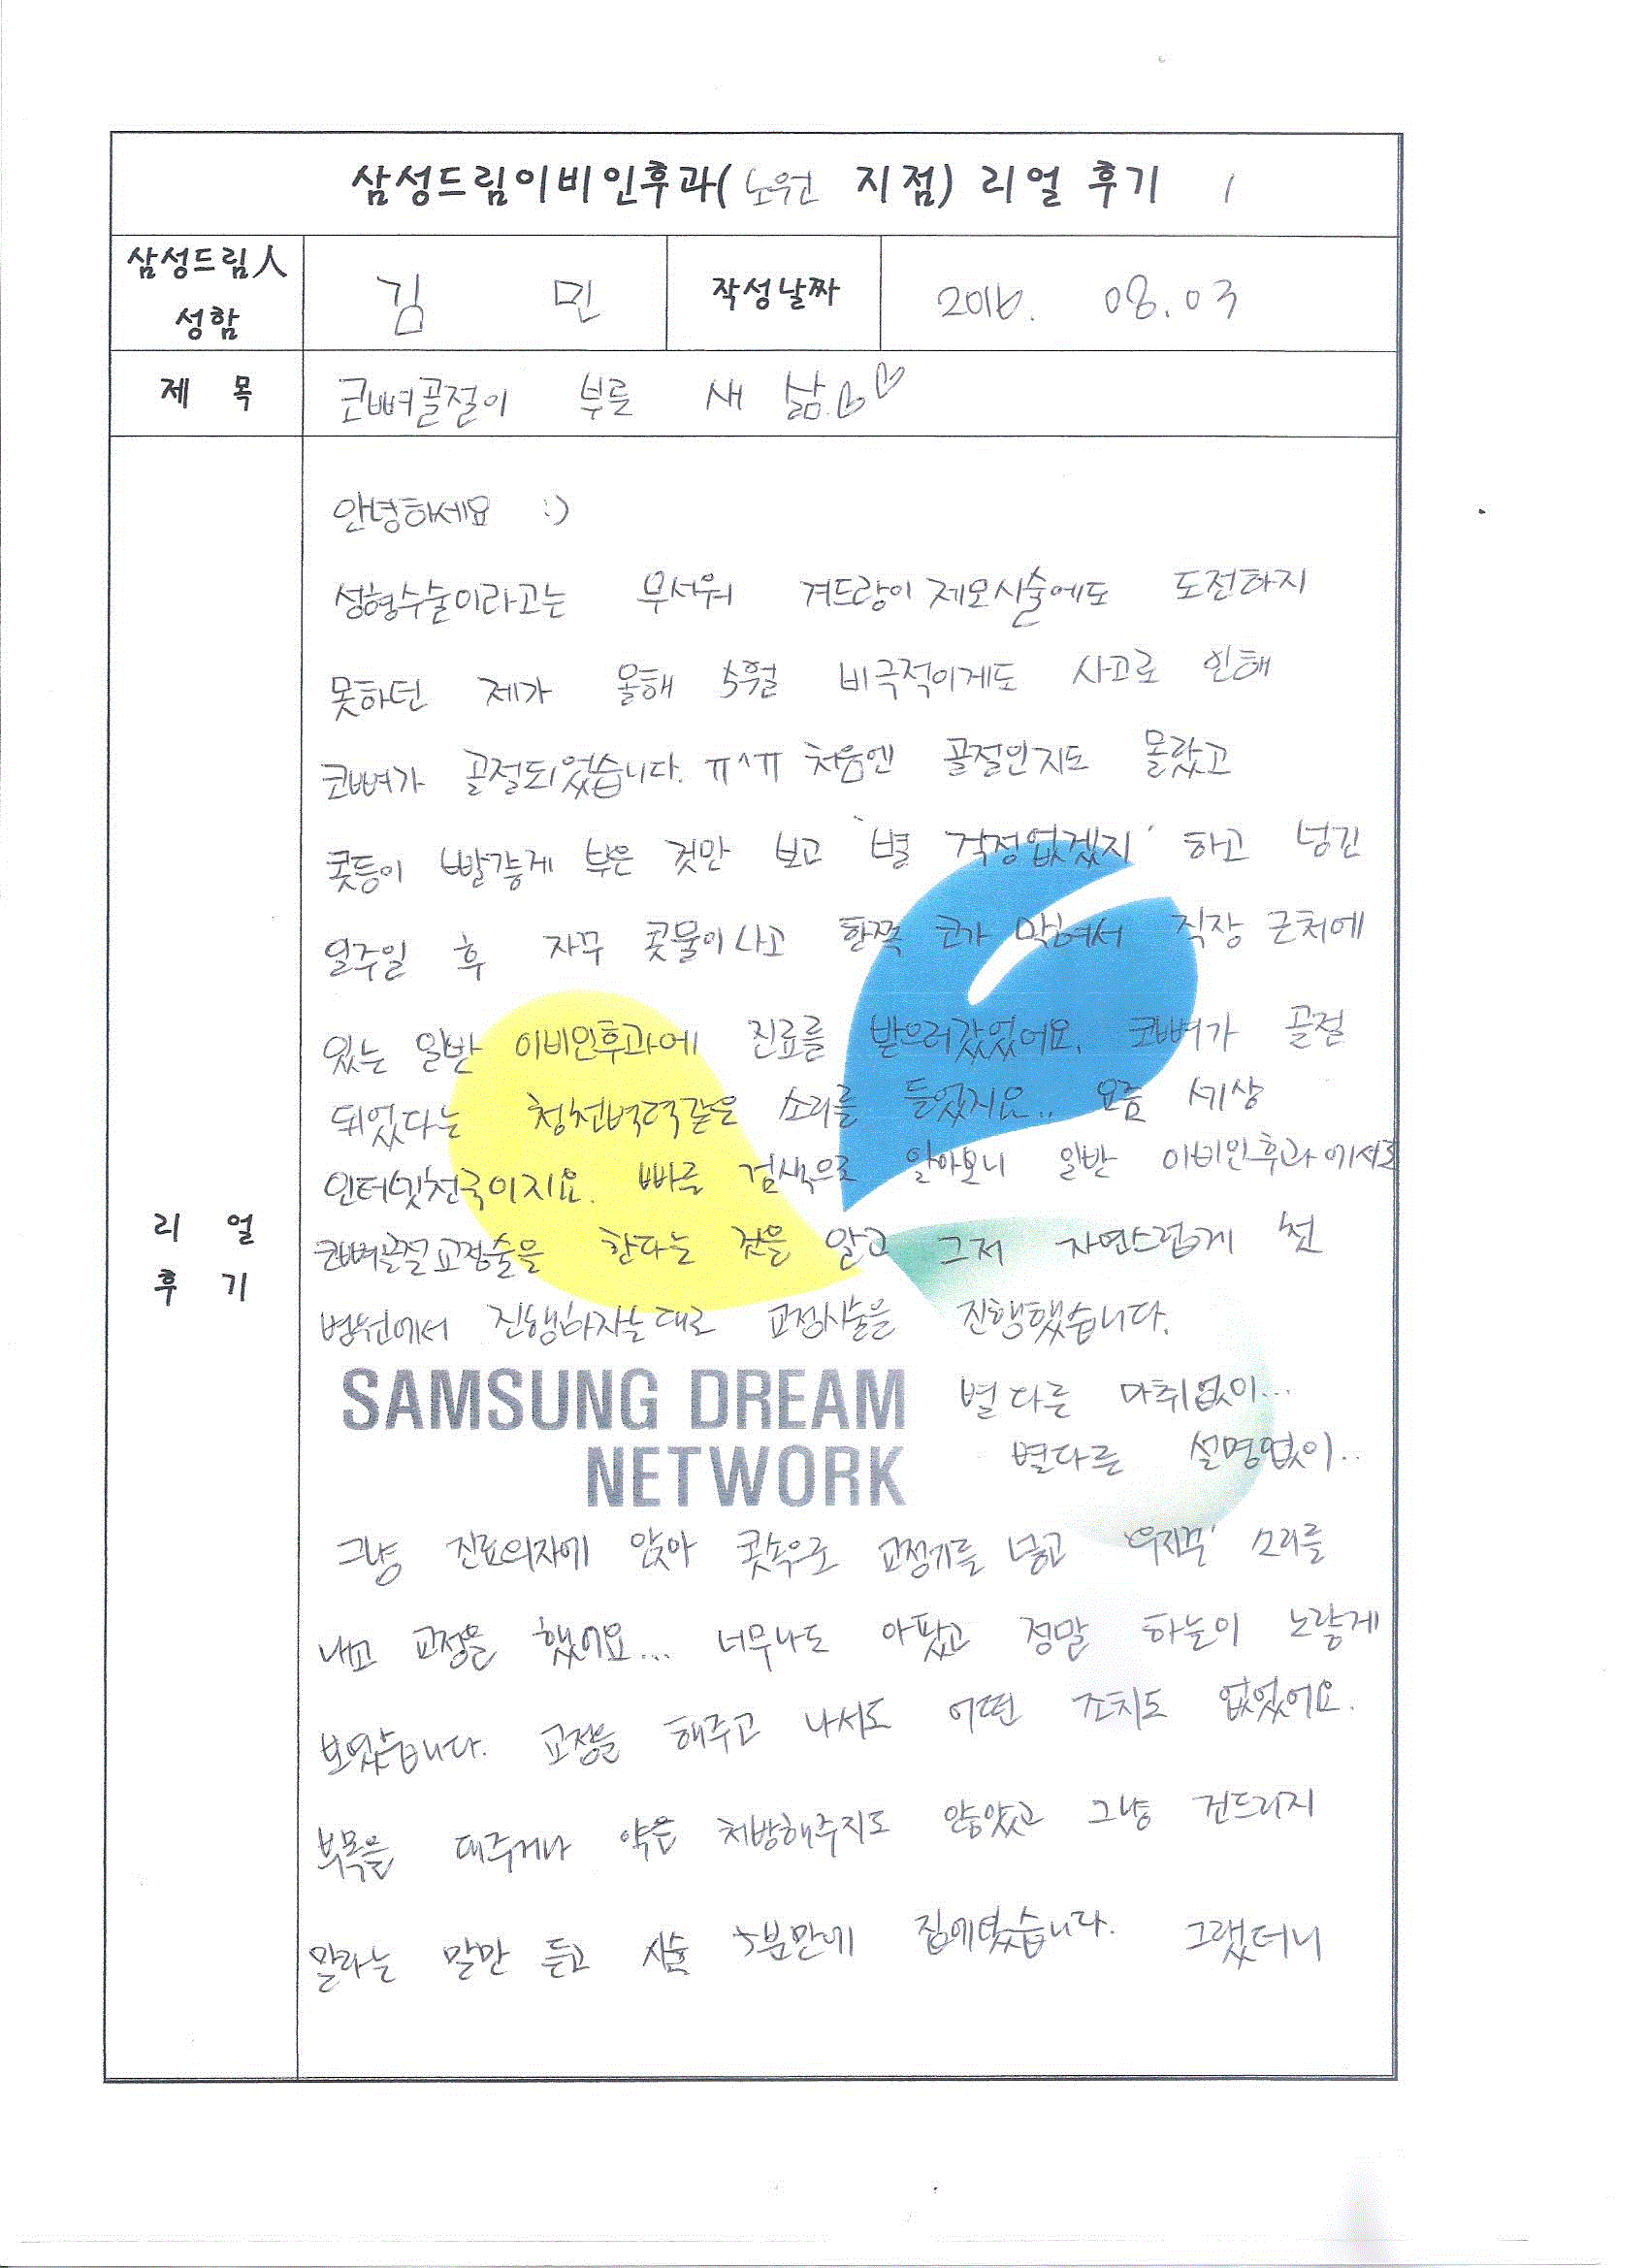 삼성드림이비인후과(노원 지점) 리얼 후기 1
삼성드림人
성함
김 민
작성날짜
2016. 08.03
제 목
코뼈골절이 부른 새 삶♡♡
리 얼
후 기
안녕하세요 :)
성형수술이라고는 무서워 겨드랑이 제모시술에도 도전하지
못하던 제가 올해 5월 비극적이게도 사고로 인해
코뼈가 골절되었습니다. ㅠ^ㅠ 처음엔 골절인지도 몰랐고
콧등이 빨갛게 부은 것만 보고 '별 걱정없겠지' 하고 넘긴
일주일 후 자꾸 콧물이나고 한쪽 코가 막혀서 직장 근처에
있는 일반 이비인후과에 진료를 받으러갔었어요. 코뼈가 골절
되었다는 청천벽력같은 소리를 들었지요.. 요즘 세상
인터넷천국이지요. 빠른 검색으로 알아보니 일반 이비인후과에서도
코뼈골절교정술을 한다는 것을 알고 그저 자연스럽게 첫
병원에서 진행하자는대로 교정시술을 진행했습니다.
SAMSUNG DREAM
NETWORK
별다른 마취없이...
별다른 설명없이..
그냥 진료의자에 앉아 콧속으로 교정기를 넣고 '우지끈' 소리를
내고 교정을 했어요... 너무나도 아팠고 정말 하늘이 노랗게
보였습니다. 교정을 해주고 나서도 어떤 조치도 없었어요.
부목을 대주거나 약은 처방해주지도 않았고 그냥 건드리지
말라는 말만 듣고 시술 5분만에 집에갔습니다. 그랬더니